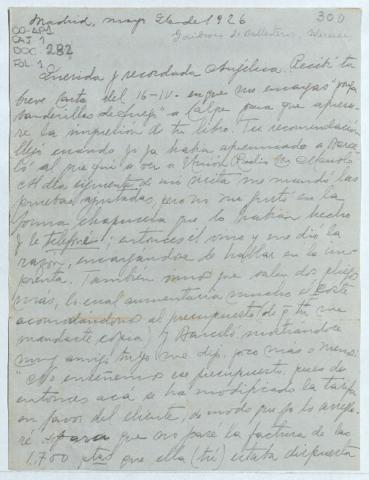 Madrid, mayo de 1926
300
Gaibrois de Ballesteros, Mercedes
CO-AP1
CAJ 1
DOC. 282
FOL. 1
Querida y recordada Angélica. Recibí tu
breve carta del 16-IV- en que me encargas "ponga
banderillas de fuego" a Calpe para que apresu-
re la impresión de tu libro. Tu recomendación
llegó cuando yo ya había apremiado a Barce-
ló al que fuí a ver a
Al día siguiente de mi visita me mandó las
pruebas ajustadas, pero no me gustó en la
forma chapucera que lo habían hecho
y le telefoneé; entonces él vino y me dió la
razón, encargándose de hablar en la im-
prenta. También vimos que salen dos pliegos
más, lo cual aumentaría mucho el coste
acomodándonos al presupuesto (de q tú me
mandaste copia) y Barceló mostrándose
muy amigo tuyo me dijo, poco más o menos:
"No enseñemos ese presupuesto, pues de
entonces acá se ha modificado la tarifa
en favor del cliente, de modo que yo lo arregla-
ré para que no pase la factura de las
1,700 ptas que ella (tú) estaba dispuesta